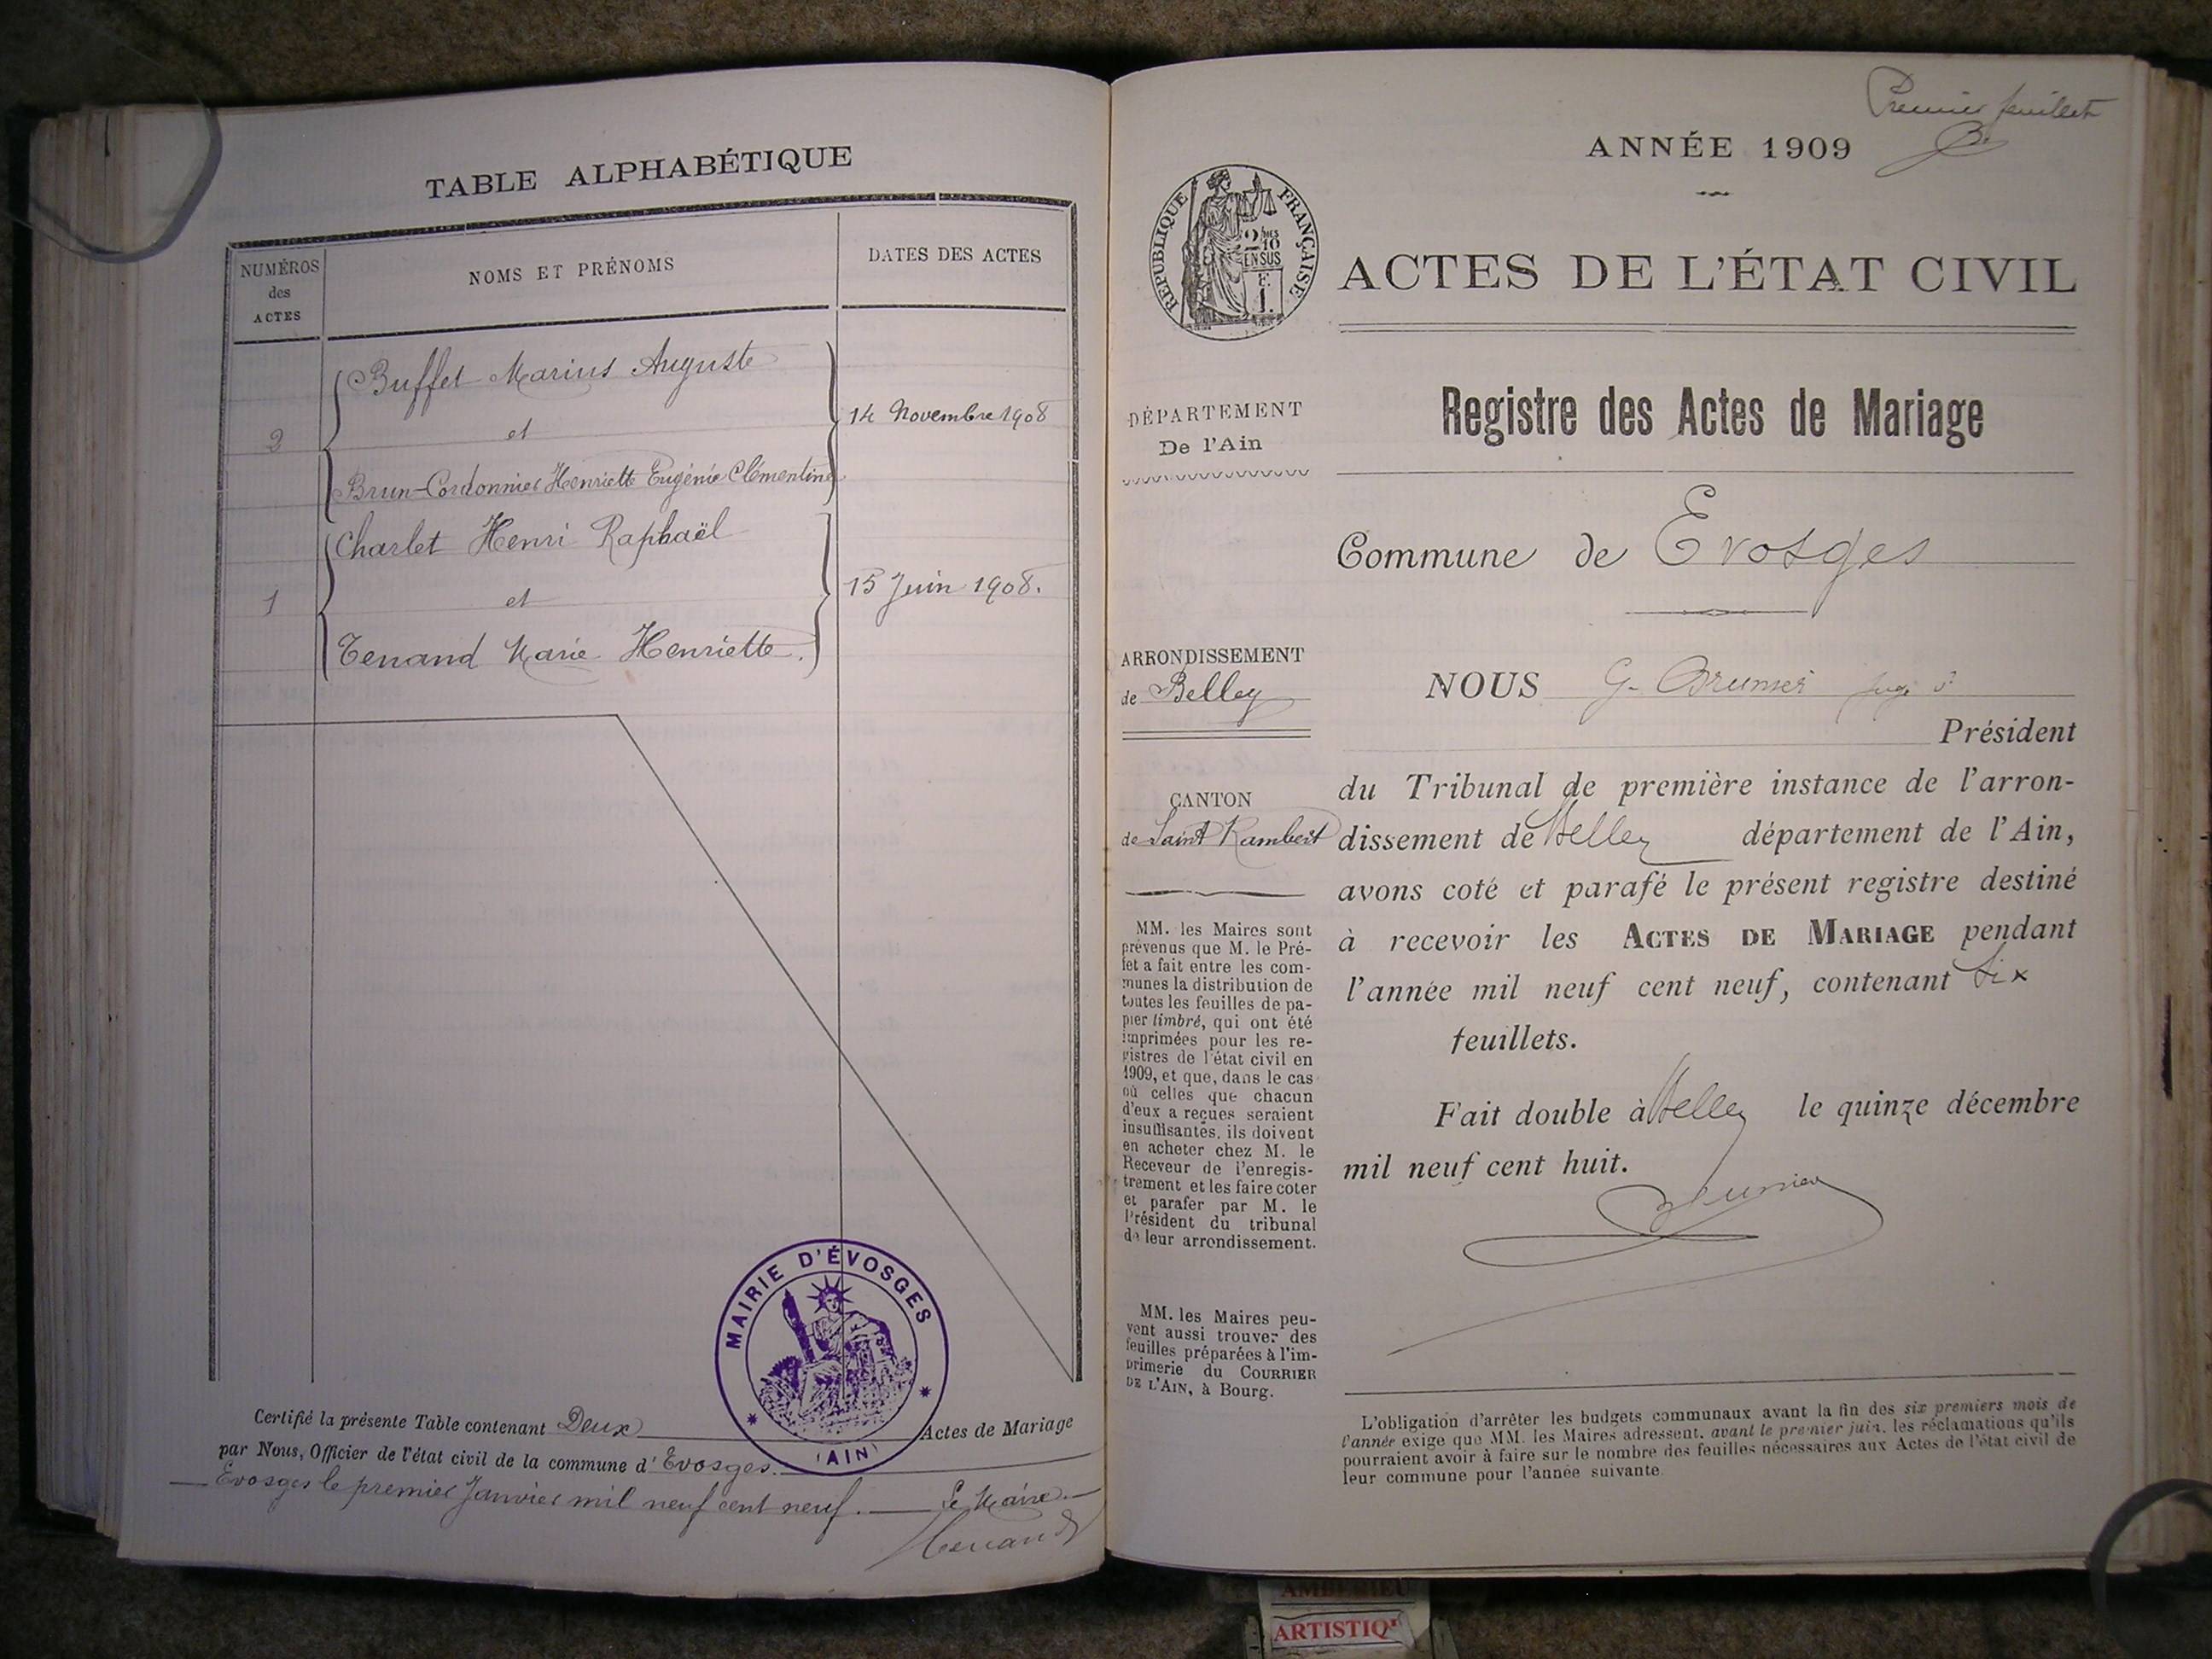 TABLE ALPHABÉTIQUE
NUMÉROS
des
ACTES
NOMS ET PRÉNOMS
DATES DES ACTES
Buffet Marius Auguste
2
et
14 Novembre 1908
Brun-Cordonnier Henriette Eugénie Clémentine
Charlet Henri Raphaël
1
et
15 Juin 1908.
Tenand Marie Henriette.
MAIRIE D'ÉVOSGES
(AIN)
Certifié la présente Table contenant Deux Actes de Mariage
par Nous, Officier de l'état civil de la commune d'Evosges.
Evosges le premier Janvier mil neuf cent neuf. Le Maire.
Tenand
Premier feuillet
B.
ANNÉE 1909
RÉPUBLIQUE FRANÇAISE
ACTES DE L'ÉTAT CIVIL
DÉPARTEMENT
De l'Ain
Registre des Actes de Mariage
Commune de Evosges
ARRONDISSEMENT
de Belley
NOUS G. Brunier
Président
CANTON
de Saint Rambert
du Tribunal de première instance de l'arron-
dissement de Belley département de l'Ain,
avons coté et parafé le présent registre destiné
à recevoir les ACTES DE MARIAGE pendant
l'année mil neuf cent neuf, contenant six
feuillets.
Fait double à Belley le quinze décembre
mil neuf cent huit.
Brunier
MM. les Maires sont
prévenus que M. le Pré-
fet a fait entre les com-
munes la distribution de
toutes les feuilles de pa-
pier timbré, qui ont été
imprimées pour les re-
gistres de l'état civil en
1909, et que, dans le cas
où celles que chacun
d'eux a reçues seraient
insuffisantes, ils doivent
en acheter chez M. le
Receveur de l'enregis-
trement et les faire coter
et parafer par M. le
Président du tribunal
de leur arrondissement.
MM. les Maires peu-
vent aussi trouver des
feuilles préparées à l'im-
primerie du COURRIER
DE L'AIN, à Bourg.
L'obligation d'arrêter les budgets communaux avant la fin des six premiers mois de
l'année exige que MM. les Maires adressent, avant le premier juin, les réclamations qu'ils
pourraient avoir à faire sur le nombre des feuilles nécessaires aux Actes de l'état civil de
leur commune pour l'année suivante.
AMBERIEU
ARTISTIQ